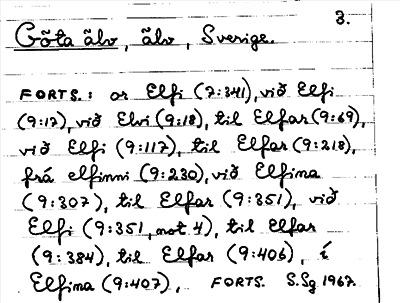 3.
Göta älv, älv, Sverige.
FORTS.: or Elfi (7:341), við Elfi
(9:17), við Elvi (9:18), til Elfar (9:69),
við Elfi (9:117), til Elfar (9:218),
frá elfinni (9:230), við Elfina
(9:307), til Elfar (9:351), við
Elfi (9:351, not 4), til Elfar
(9:384), til Elfar (9:406), í
Elfina (9:407), FORTS. S.Sg 1967.